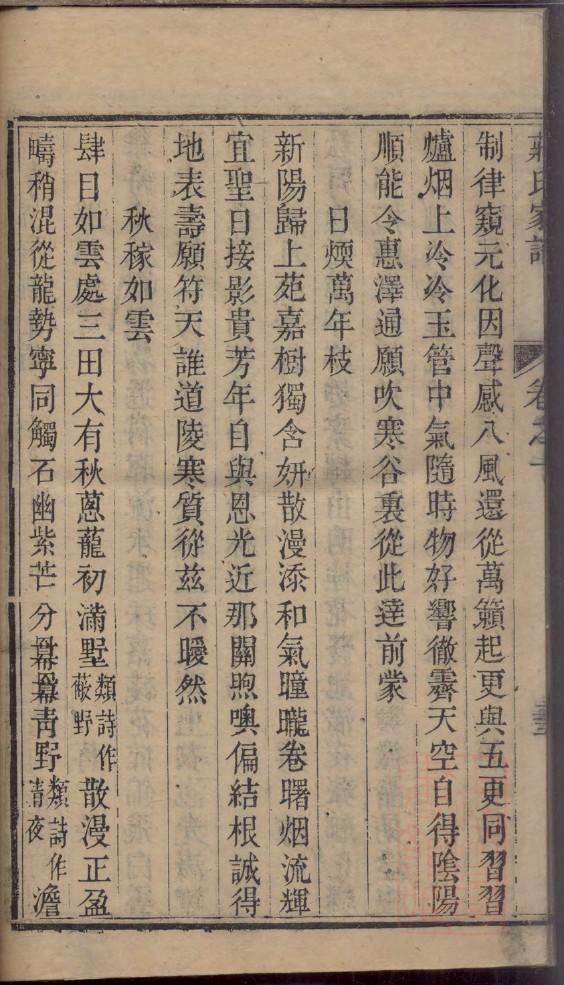 氏家
卷之
制律窺元化因聲感八風還從萬籟起更與五更同習習
爐烟上泠泠玉管中氣隨時物好響徹霽天空自得陰陽
順能令惠澤通願吹寒谷裏從此達前蒙
日煗萬年枝
新陽歸上苑嘉樹獨含妍散漫添和氣曈曨卷曙烟流輝
宜聖日接影貴芳年自與恩光近那關煦嘔偏結根誠得
地表壽願符天誰道陵寒質從兹不曖然
秋稼如雲
肆目如雲處三田大有秋蔥蘢初滿墅類詩作蔽野散漫正盈
疇稍混從龍勢寧同觸石幽紫芒分冪冪青野類詩作清夜澹